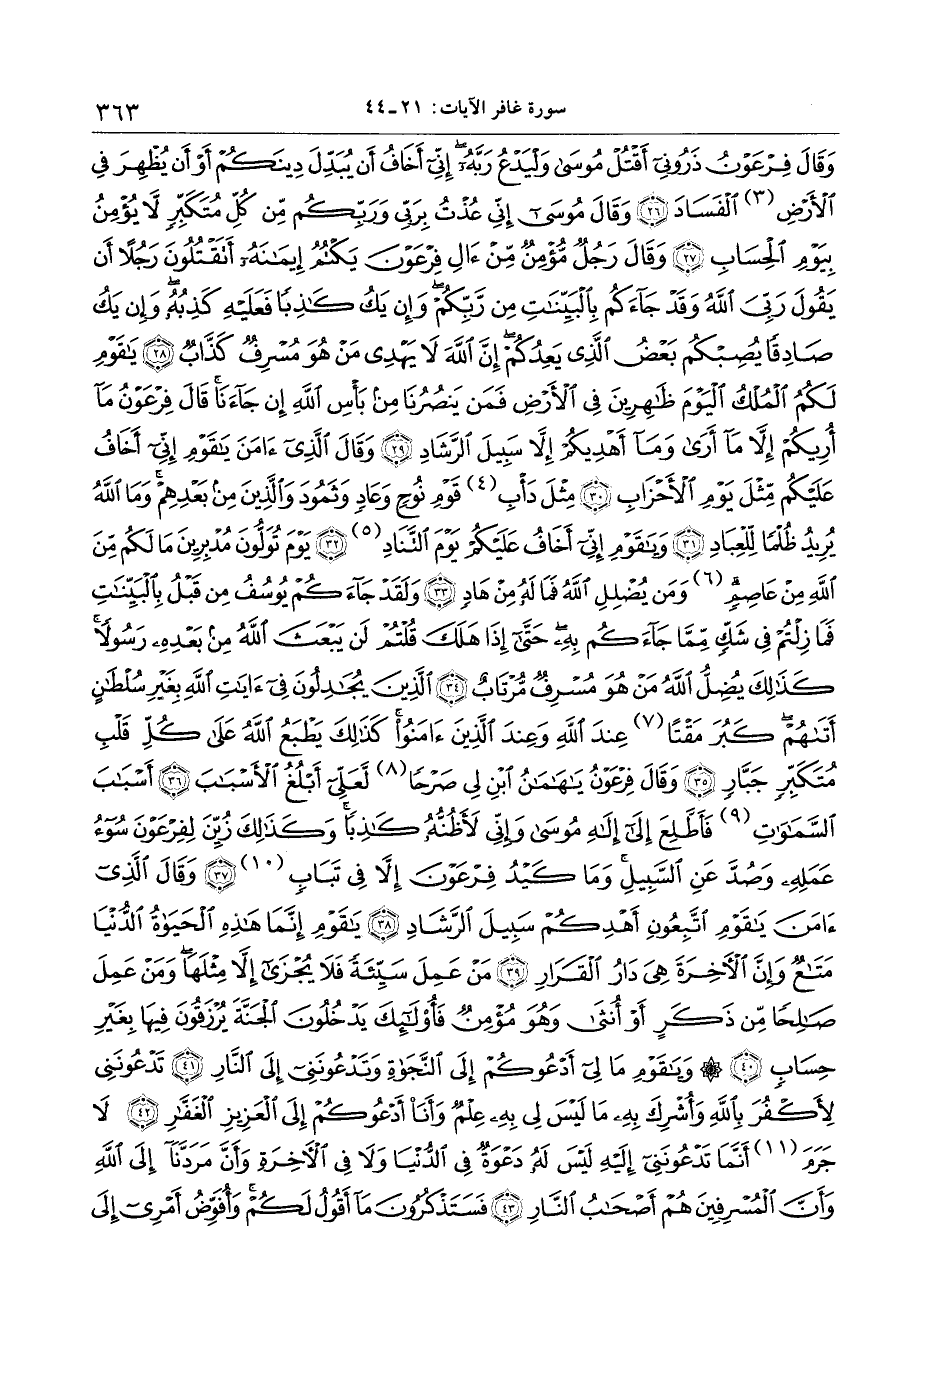 سورة غافر الآيات: ٢١-٤٤
٣٦٣
وَقَالَ فِرْعَوْنُ ذَرُونِىٓ أَقْتُلْ مُوسَىٰ وَلْيَدْعُ رَبَّهُۥٓ ۖ إِنِّىٓ أَخَافُ أَن يُبَدِّلَ دِينَكُمْ أَوْ أَن يُظْهِرَ فِى
ٱلْأَرْضِ (٣) ٱلْفَسَادَ ٢٦ وَقَالَ مُوسَىٰٓ إِنِّى عُذْتُ بِرَبِّى وَرَبِّكُم مِّن كُلِّ مُتَكَبِّرٍ لَّا يُؤْمِنُ
بِيَوْمِ ٱلْحِسَابِ ٢٧ وَقَالَ رَجُلٌ مُّؤْمِنٌ مِّنْ ءَالِ فِرْعَوْنَ يَكْتُمُ إِيمَٰنَهُۥٓ أَتَقْتُلُونَ رَجُلًا أَن
يَقُولَ رَبِّىَ ٱللَّهُ وَقَدْ جَآءَكُم بِٱلْبَيِّنَٰتِ مِن رَّبِّكُمْ ۖ وَإِن يَكُ كَٰذِبًا فَعَلَيْهِ كَذِبُهُۥ ۖ وَإِن يَكُ
صَادِقًا يُصِبْكُم بَعْضُ ٱلَّذِى يَعِدُكُمْ ۖ إِنَّ ٱللَّهَ لَا يَهْدِى مَنْ هُوَ مُسْرِفٌ كَذَّابٌ ٢٨ يَٰقَوْمِ
لَكُمُ ٱلْمُلْكُ ٱلْيَوْمَ ظَٰهِرِينَ فِى ٱلْأَرْضِ فَمَن يَنصُرُنَا مِنۢ بَأْسِ ٱللَّهِ إِن جَآءَنَا ۚ قَالَ فِرْعَوْنُ مَآ
أُرِيكُمْ إِلَّا مَآ أَرَىٰ وَمَآ أَهْدِيكُمْ إِلَّا سَبِيلَ ٱلرَّشَادِ ٢٩ وَقَالَ ٱلَّذِىٓ ءَامَنَ يَٰقَوْمِ إِنِّىٓ أَخَافُ
عَلَيْكُم مِّثْلَ يَوْمِ ٱلْأَحْزَابِ ٣٠ مِثْلَ دَأْبِ (٤) قَوْمِ نُوحٍ وَعَادٍ وَثَمُودَ وَٱلَّذِينَ مِنۢ بَعْدِهِمْ ۚ وَمَا ٱللَّهُ
يُرِيدُ ظُلْمًا لِّلْعِبَادِ ٣١ وَيَٰقَوْمِ إِنِّىٓ أَخَافُ عَلَيْكُمْ يَوْمَ ٱلتَّنَادِ (٥) ٣٢ يَوْمَ تُوَلُّونَ مُدْبِرِينَ مَا لَكُم مِّنَ
ٱللَّهِ مِنْ عَاصِمٍ ۗ (٦) وَمَن يُضْلِلِ ٱللَّهُ فَمَا لَهُۥ مِنْ هَادٍ ٣٣ وَلَقَدْ جَآءَكُمْ يُوسُفُ مِن قَبْلُ بِٱلْبَيِّنَٰتِ
فَمَا زِلْتُمْ فِى شَكٍّ مِّمَّا جَآءَكُم بِهِۦ ۖ حَتَّىٰٓ إِذَا هَلَكَ قُلْتُمْ لَن يَبْعَثَ ٱللَّهُ مِنۢ بَعْدِهِۦ رَسُولًا ۚ
كَذَٰلِكَ يُضِلُّ ٱللَّهُ مَنْ هُوَ مُسْرِفٌ مُّرْتَابٌ ٣٤ ٱلَّذِينَ يُجَٰدِلُونَ فِىٓ ءَايَٰتِ ٱللَّهِ بِغَيْرِ سُلْطَٰنٍ
أَتَىٰهُمْ ۖ كَبُرَ مَقْتًا (٧) عِندَ ٱللَّهِ وَعِندَ ٱلَّذِينَ ءَامَنُوا۟ ۚ كَذَٰلِكَ يَطْبَعُ ٱللَّهُ عَلَىٰ كُلِّ قَلْبِ
مُتَكَبِّرٍ جَبَّارٍ ٣٥ وَقَالَ فِرْعَوْنُ يَٰهَٰمَٰنُ ٱبْنِ لِى صَرْحًا (٨) لَّعَلِّىٓ أَبْلُغُ ٱلْأَسْبَٰبَ ٣٦ أَسْبَٰبَ
ٱلسَّمَٰوَٰتِ (٩) فَأَطَّلِعَ إِلَىٰٓ إِلَٰهِ مُوسَىٰ وَإِنِّى لَأَظُنُّهُۥ كَٰذِبًا ۚ وَكَذَٰلِكَ زُيِّنَ لِفِرْعَوْنَ سُوٓءُ
عَمَلِهِۦ وَصُدَّ عَنِ ٱلسَّبِيلِ ۚ وَمَا كَيْدُ فِرْعَوْنَ إِلَّا فِى تَبَابٍ (١٠) ٣٧ وَقَالَ ٱلَّذِىٓ
ءَامَنَ يَٰقَوْمِ ٱتَّبِعُونِ أَهْدِكُمْ سَبِيلَ ٱلرَّشَادِ ٣٨ يَٰقَوْمِ إِنَّمَا هَٰذِهِ ٱلْحَيَوٰةُ ٱلدُّنْيَا
مَتَٰعٌ وَإِنَّ ٱلْأَخِرَةَ هِىَ دَارُ ٱلْقَرَارِ ٣٩ مَنْ عَمِلَ سَيِّئَةً فَلَا يُجْزَىٰٓ إِلَّا مِثْلَهَا ۖ وَمَنْ عَمِلَ
صَٰلِحًا مِّن ذَكَرٍ أَوْ أُنثَىٰ وَهُوَ مُؤْمِنٌ فَأُو۟لَٰٓئِكَ يَدْخُلُونَ ٱلْجَنَّةَ يُرْزَقُونَ فِيهَا بِغَيْرِ
حِسَابٍ ٤٠ ۞ وَيَٰقَوْمِ مَا لِىٓ أَدْعُوكُمْ إِلَى ٱلنَّجَوٰةِ وَتَدْعُونَنِىٓ إِلَى ٱلنَّارِ ٤١ تَدْعُونَنِى
لِأَكْفُرَ بِٱللَّهِ وَأُشْرِكَ بِهِۦ مَا لَيْسَ لِى بِهِۦ عِلْمٌ وَأَنَا۠ أَدْعُوكُمْ إِلَى ٱلْعَزِيزِ ٱلْغَفَّٰرِ ٤٢ لَا
جَرَمَ (١١) أَنَّمَا تَدْعُونَنِىٓ إِلَيْهِ لَيْسَ لَهُۥ دَعْوَةٌ فِى ٱلدُّنْيَا وَلَا فِى ٱلْأَخِرَةِ وَأَنَّ مَرَدَّنَآ إِلَى ٱللَّهِ
وَأَنَّ ٱلْمُسْرِفِينَ هُمْ أَصْحَٰبُ ٱلنَّارِ ٤٣ فَسَتَذْكُرُونَ مَآ أَقُولُ لَكُمْ ۚ وَأُفَوِّضُ أَمْرِىٓ إِلَى